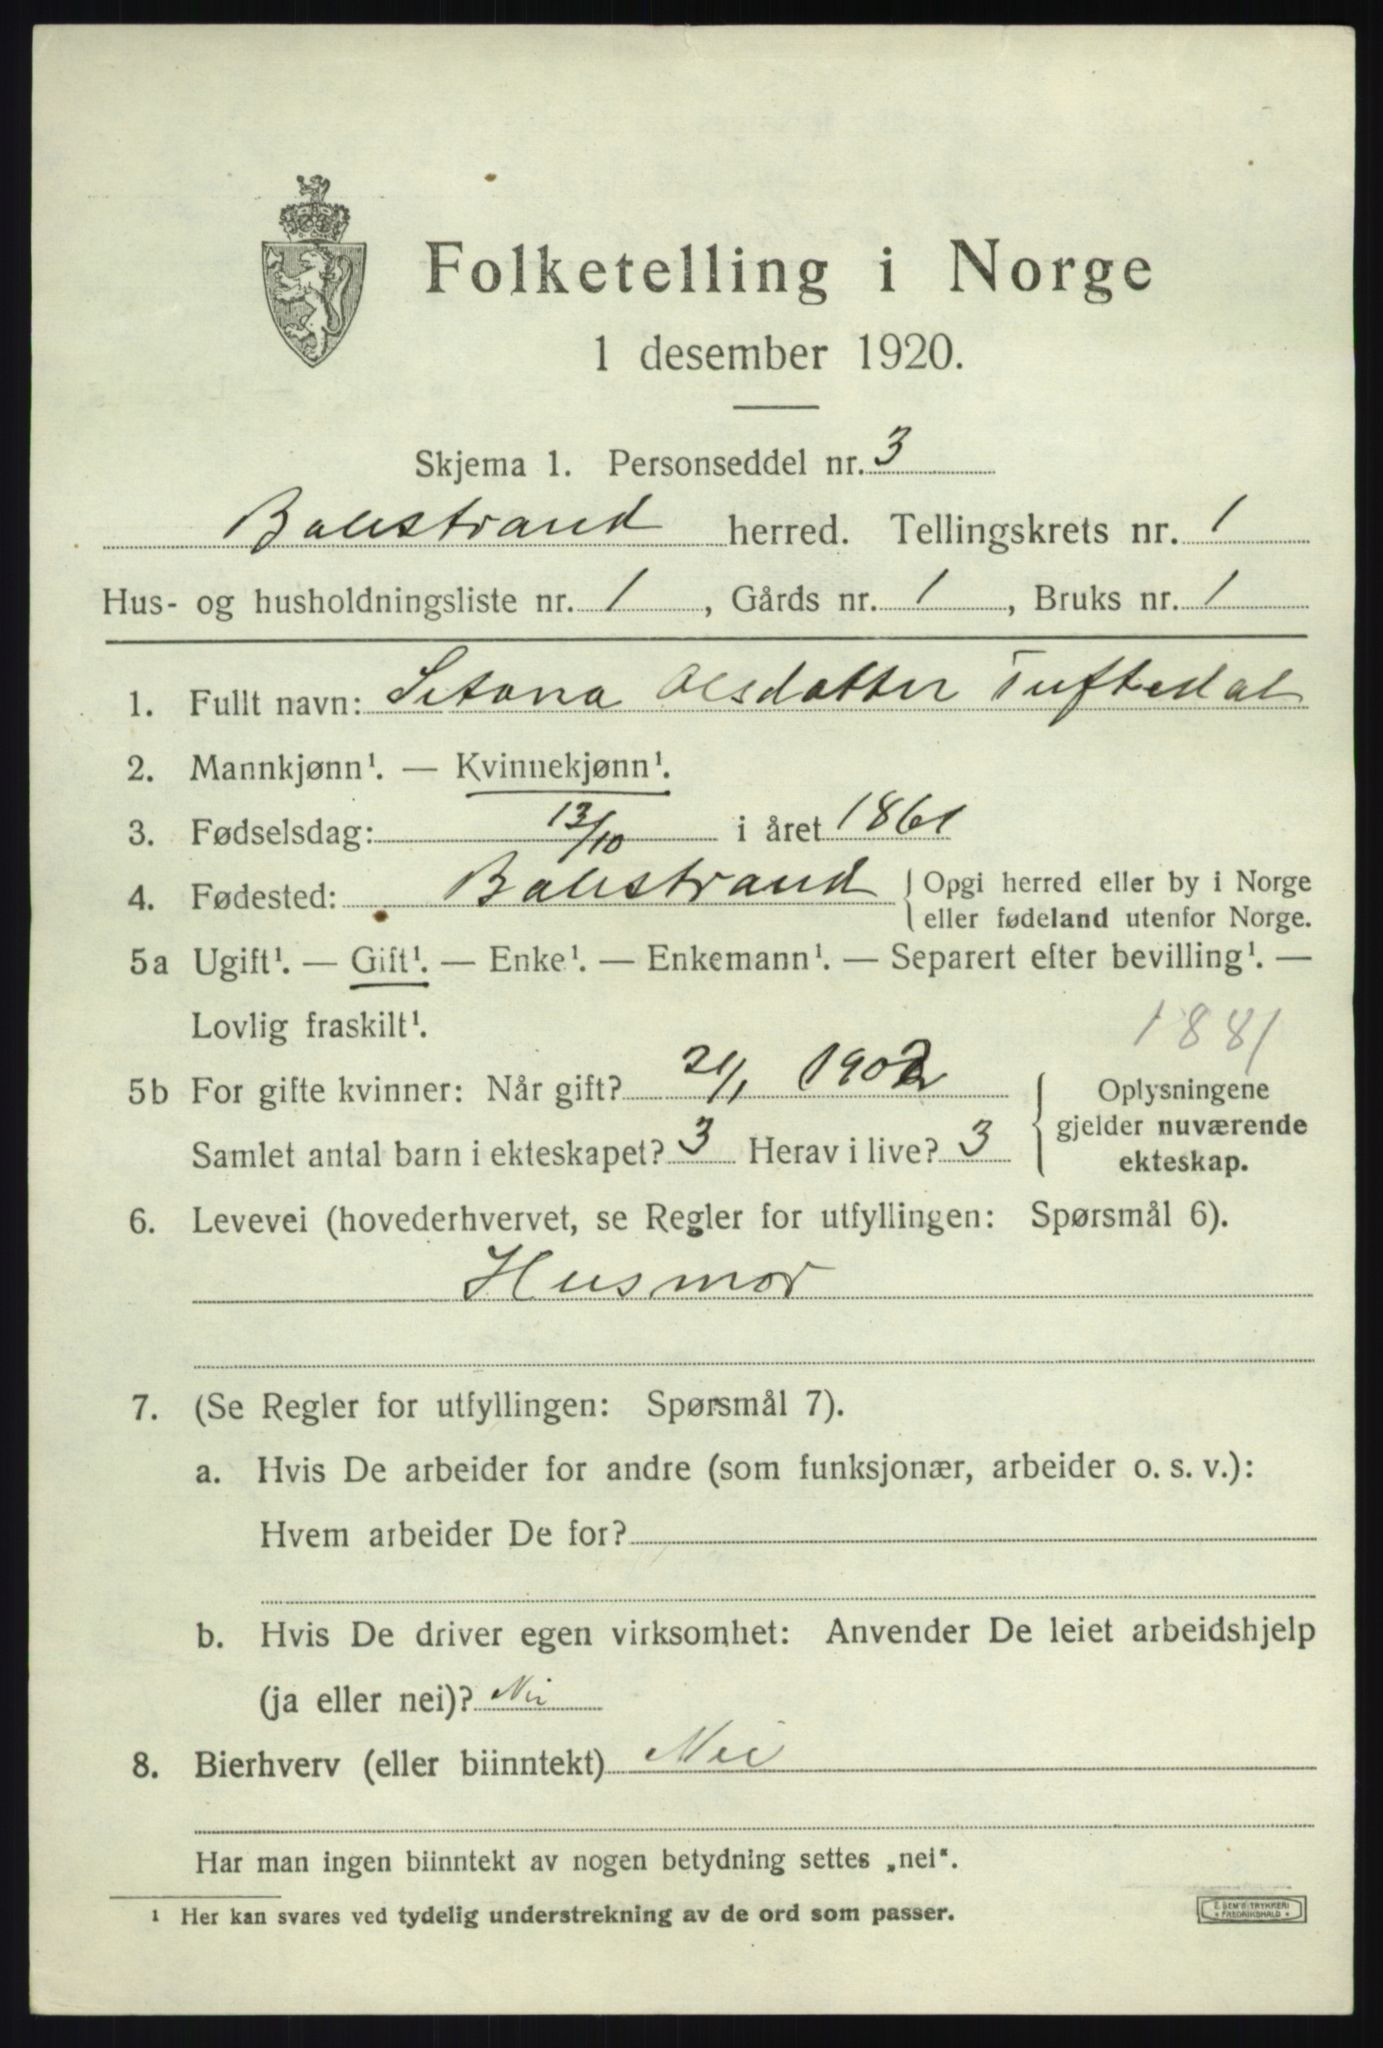 Folketelling i Norge
1 desember 1920.
Skjema 1. Personseddel nr. 3
Balestrand herred. Tellingskrets nr. 1
Hus- og husholdningsliste nr. 1, Gårds nr. 1, Bruks nr. 1
1. Fullt navn: Sitona Olsdatter Tuftedal
2. Mannkjønn¹. — Kvinnekjønn¹.
3. Fødselsdag: 13/10 i året 1861
4. Fødested: Balestrand { Opgi herred eller by i Norge
eller fødeland utenfor Norge.
5a Ugift¹. — Gift¹. — Enke¹. — Enkemann¹. — Separert efter bevilling¹. —
Lovlig fraskilt¹.
1881
5b For gifte kvinner: Når gift? 21/1 1902
Samlet antal barn i ekteskapet? 3 Herav i live? 3
{ Oplysningene
gjelder nuværende
ekteskap.
6. Levevei (hovederhvervet, se Regler for utfyllingen: Spørsmål 6).
Husmor
7. (Se Regler for utfyllingen: Spørsmål 7).
a. Hvis De arbeider for andre (som funksjonær, arbeider o. s. v.):
Hvem arbeider De for?
b. Hvis De driver egen virksomhet: Anvender De leiet arbeidshjelp
(ja eller nei)? Nei
8. Bierhverv (eller biinntekt) Nei
Har man ingen biinntekt av nogen betydning settes „nei“.
¹ Her kan svares ved tydelig understrekning av de ord som passer.
E. SEM'S TRYKKERI
FREDRIKSHALD